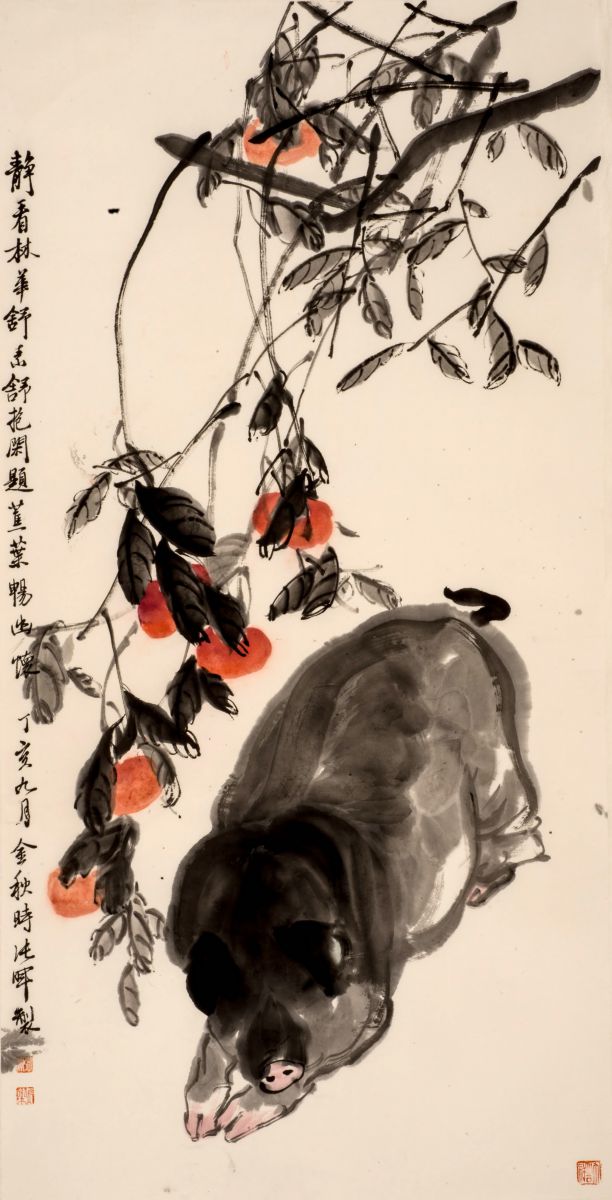 静看林華舒素舒抱閑題蕉葉暢幽懷 丁亥九月金秋時沈暉製